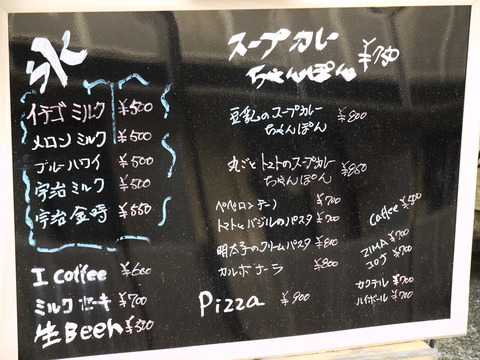 氷
イチゴ ミルク ¥500
メロン ミルク ¥500
ブルーハワイ ¥500
宇治 ミルク ¥500
宇治 金時 ¥550
I coffee ¥600
ミルク セーキ ¥700
生Beer ¥500
スープ カレー
ちゃんぽん ¥750
豆乳のスープカレー ¥800
ちゃんぽん
丸ごと トマトのスープカレー ¥850
ちゃんぽん
ペペロンチーノ ¥700
トマトとバジルのパスタ ¥700
明太子のクリームパスタ ¥800
カルボナーラ ¥800
Pizza ¥900
Coffee ¥500
ZIMA ¥700
コロナ ¥700
カクテル ¥700
ハイボール ¥700